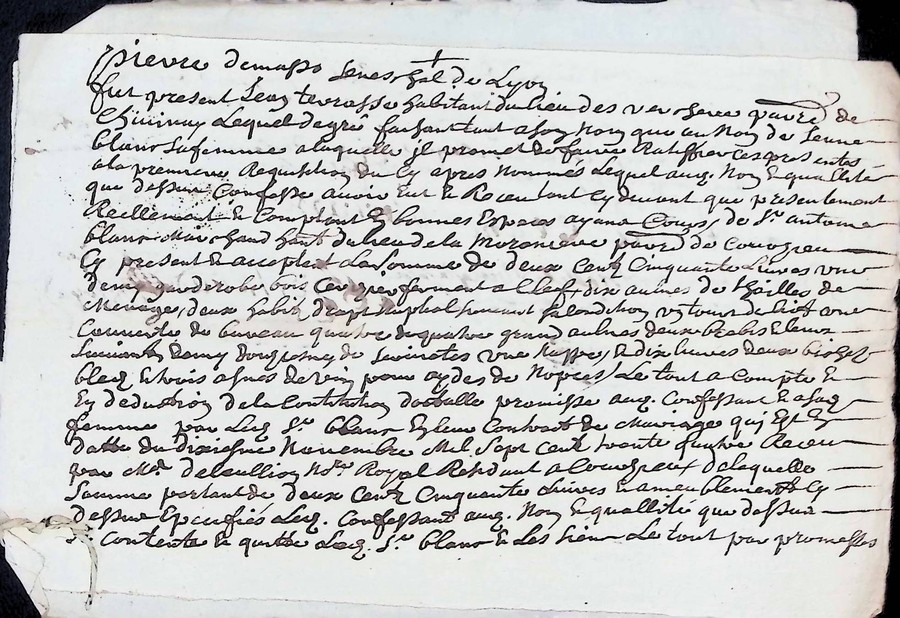 pierre demasso seneschal de Lyon
fut present Jean terrasse habitant du lieu des verchere parr.e de
Chivinay Lequel de gré faisant tant a son Nom que au Nom de Jeanne
blanc sa femme a laquelle jl promet de faire Ratiffier ces presentes
a la premiere Requisition du Cy apres Nommés Lequel auq. Nom & quallité
que dessus Confesse avoir Eut & Receu tant Cy devant que presentement
Reellement & Comptant En bonnes Especes ayant Cours, de Sr. antoine
blanc Marchand hant. du lieu de la parr.e de Courzieu
Cy present & acceptant La somme de deux Centz Cinquante Livres une
demy garderobe bois fermant a Clef, dix aulnes de thoilles de
Menage, deux habitz drapt Nuptial sa Condition un tour de lict une
Couverte de bureau quatre grand aulnes deux brebis & leurs
Suivants demy douzaine de serviettes une Nappe, & dix Livres deux bichet
bled & trois asnés de vin pour aydes de Nopces / Le tout a Compte &
En deduction de la Constitution dotalle promisse auq. Confessant & a sad.
femme par Led. Sr. blanc En leur Contract de Mariage quj Est En
datte du dixiesme Novembre Mil Sept Cent trente quatre Receu
par Me. Nore. Royal Residant a Courzieux de laquelle
Somme portant de deux Centz Cinquante Livres & ameublements Cy
dessus Specifiés Led. Confessant auq. Nom & quallité que dessus
Se Contente & quitte Led. Sr. blanc & Les siens Le tout par promesses